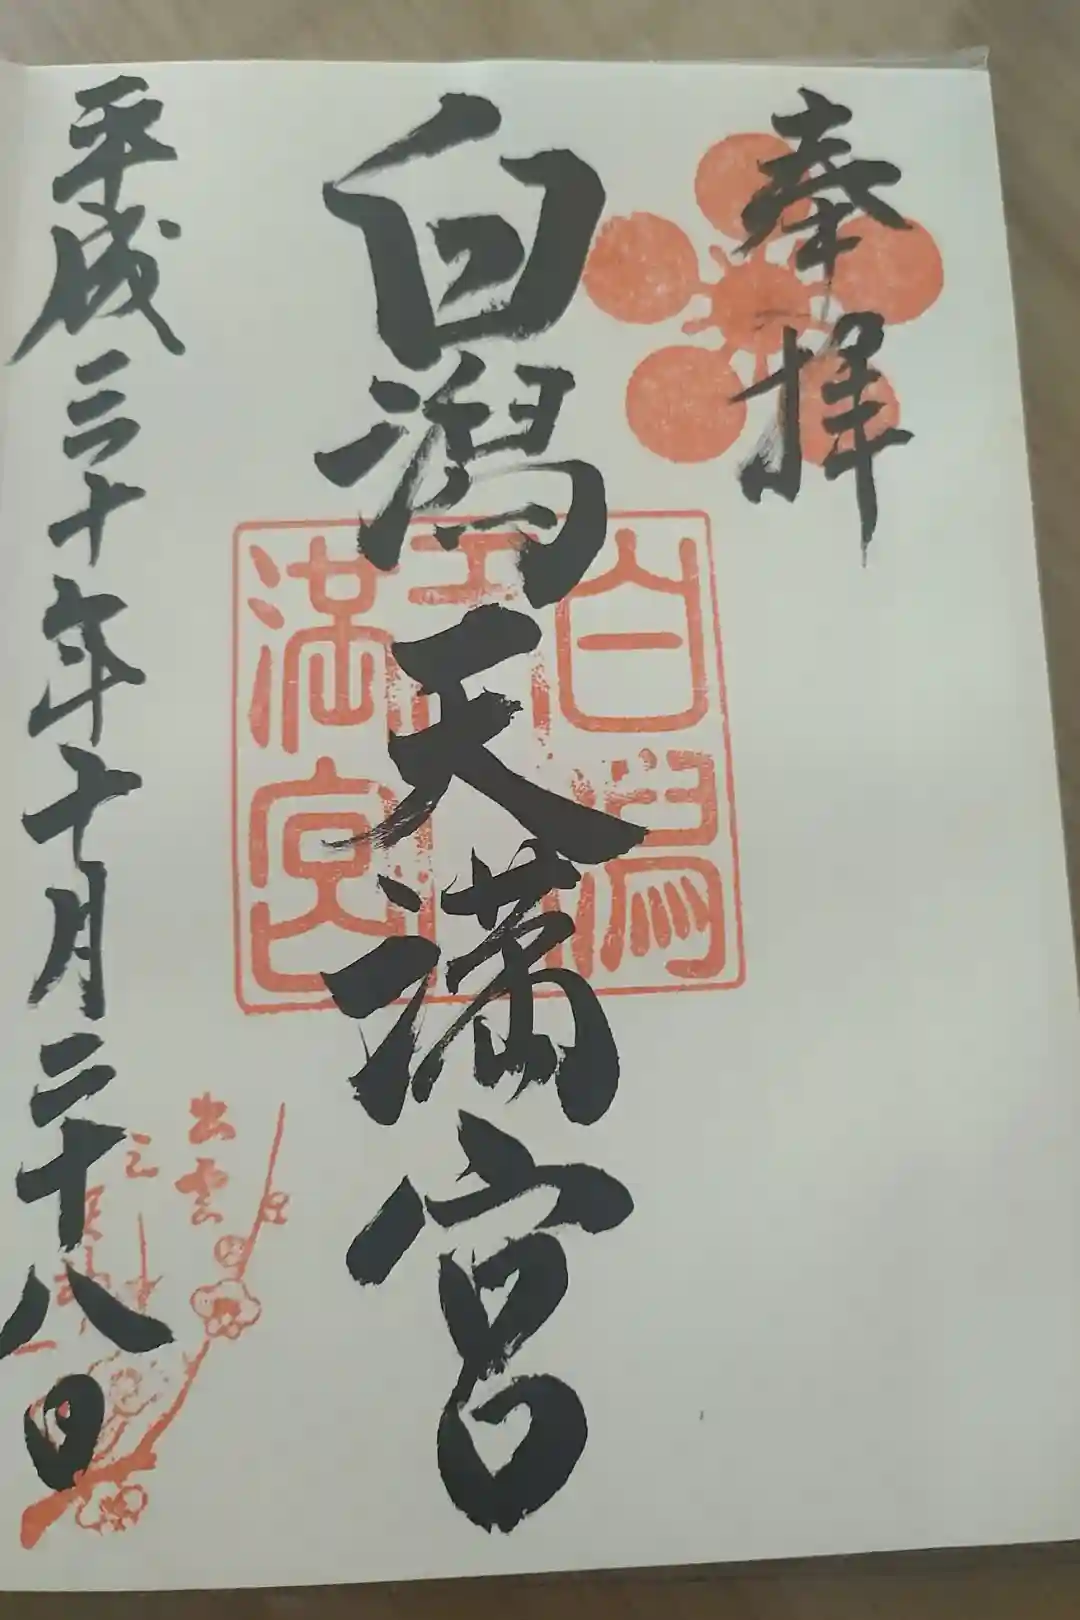 奉拝
白潟天満宮
白潟
天
満宮
平成三十年十月二十八日
出雲